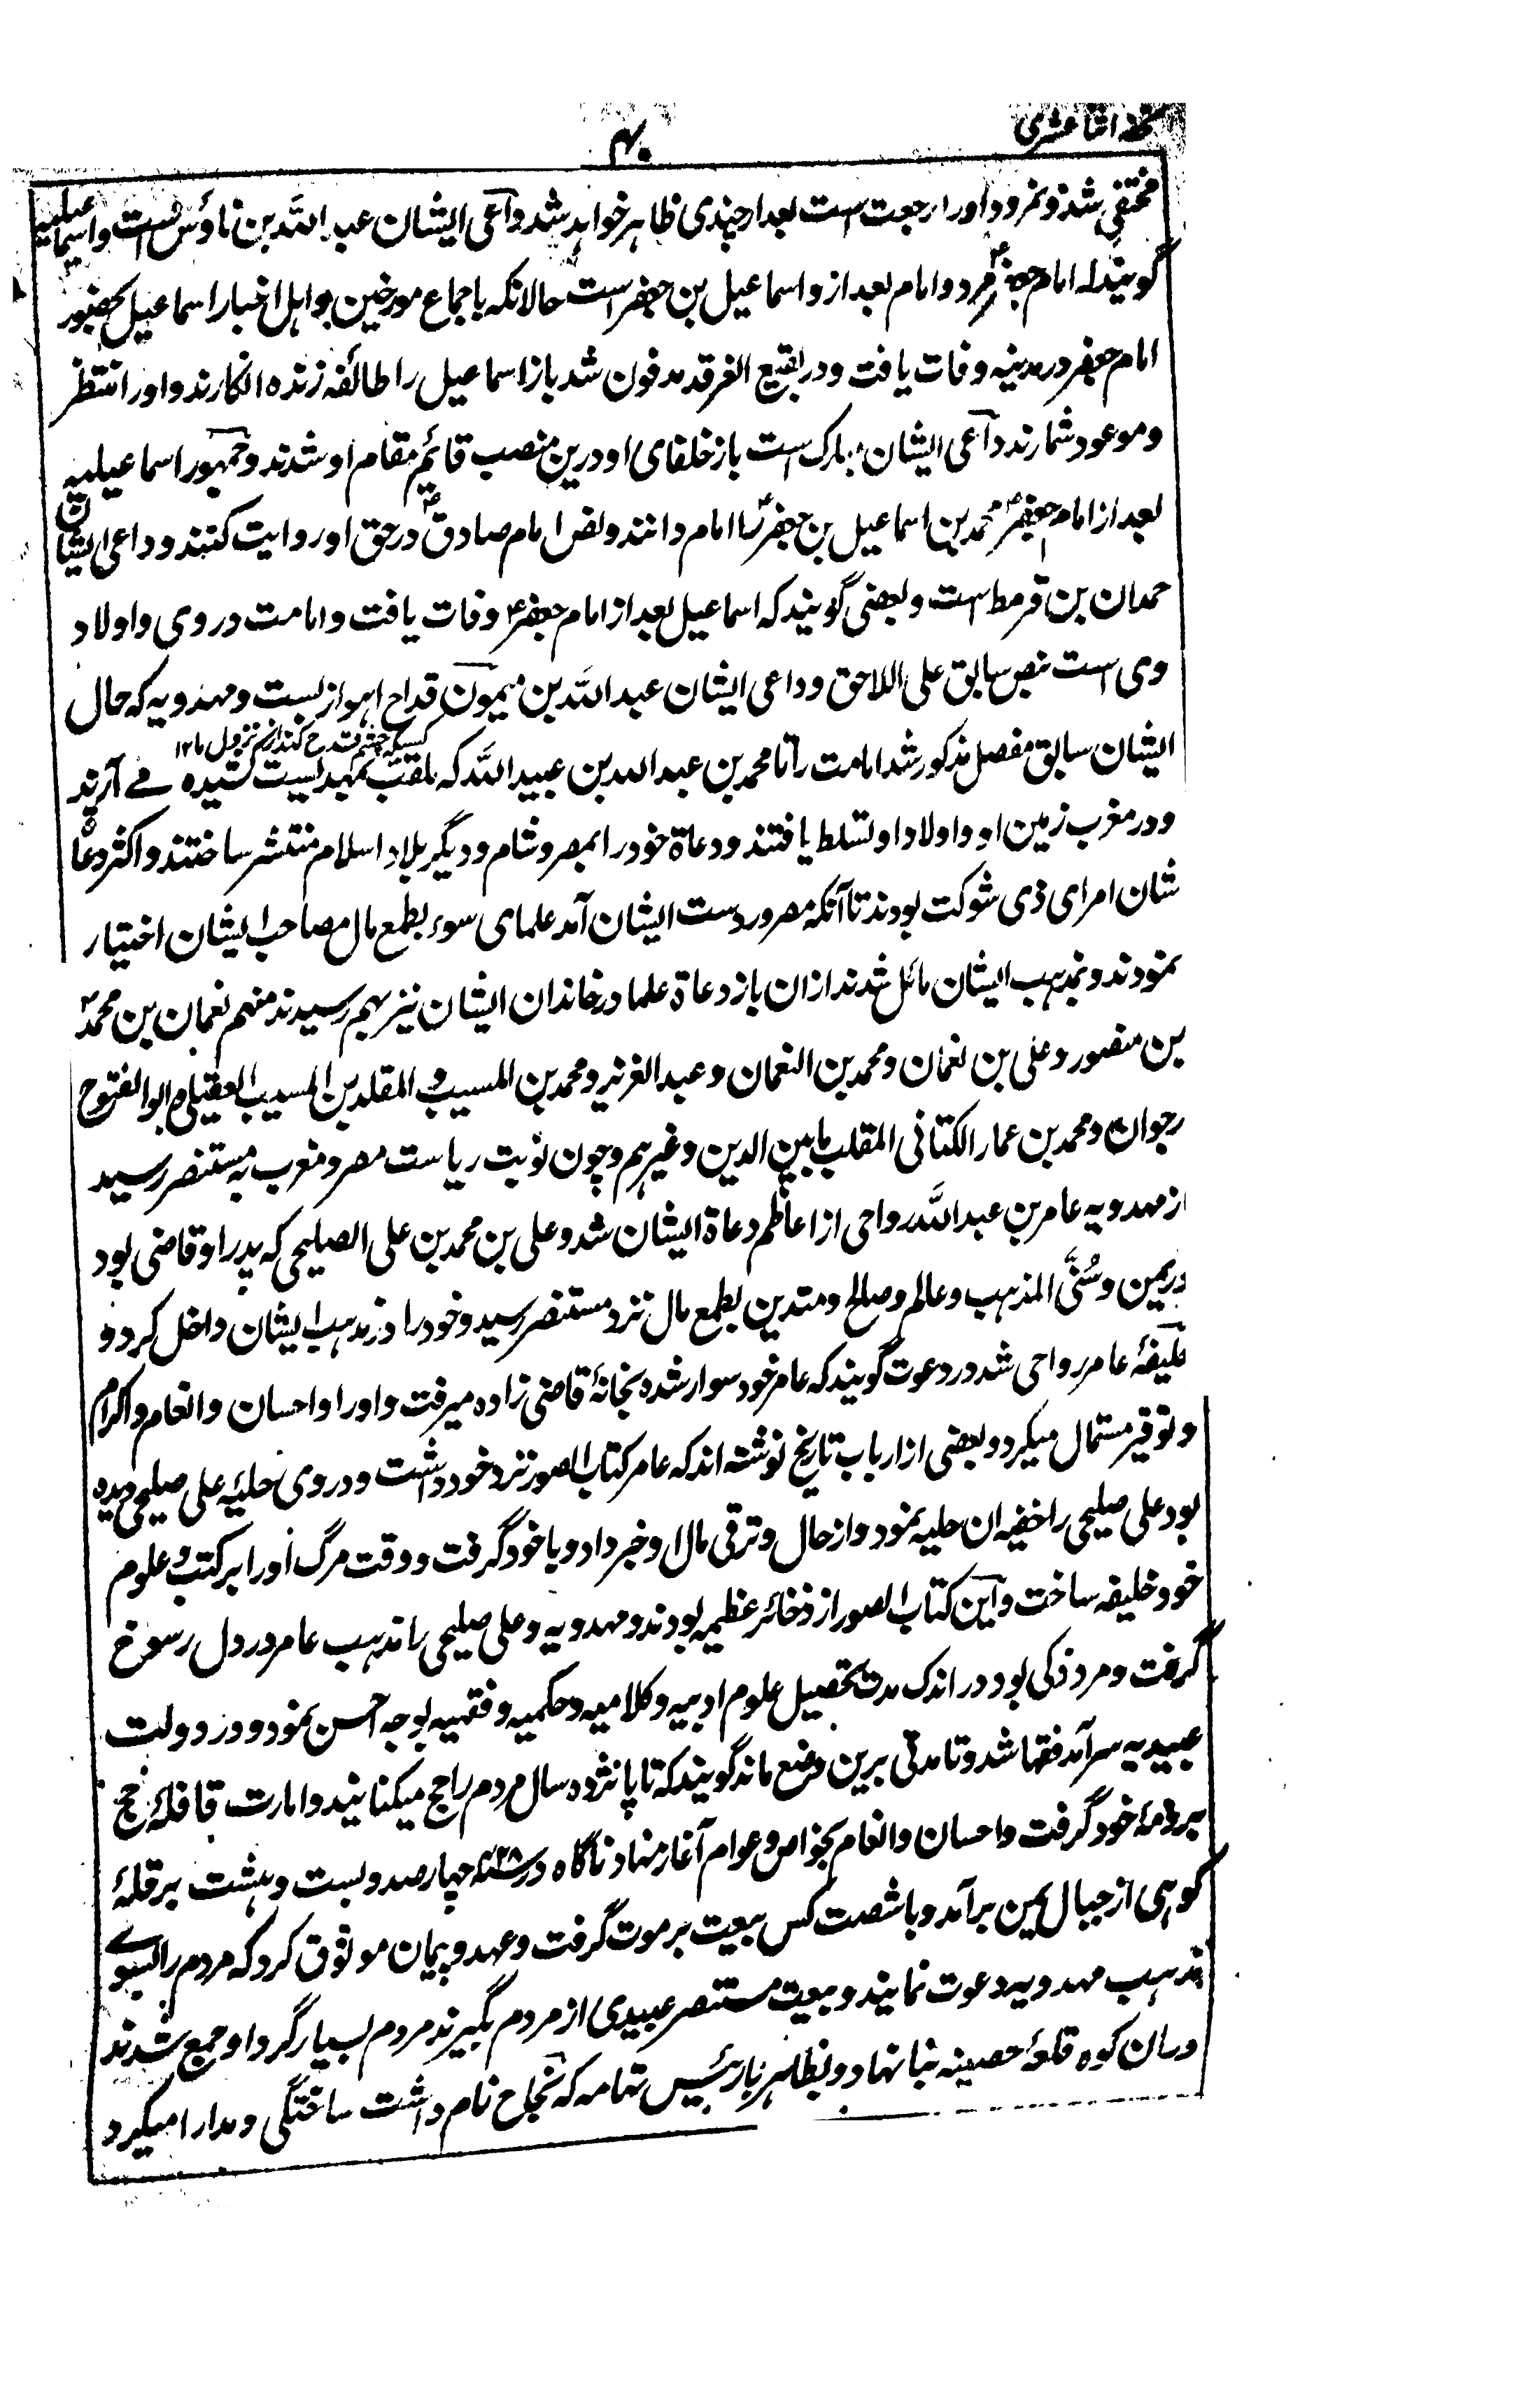 تحفهٔ اثنا عشری
۴۰
مختفی شد و نمرد و او را رجعت است بعد از چندی ظاهر خواهد شد و داعی ایشان عبد الله بن ناؤس است و اسماعیلیه
گویند که امام جعفر مرد و امام بعد از و اسماعیل بن جعفر است حالانکه باجماع مورخین و اهل اخبار اسماعیل بحضور
امام جعفر در مدینه وفات یافت و در بقیع الغرقد مدفون شد باز اسماعیل را طائفه زنده انگارند و او را منتظر
و موعود شمارند داعی ایشان مبارک است باز خلفای او درین منصب قائم مقام او شدند و جمهور اسماعیلیه
بعد از امام جعفر محمد بن اسماعیل بن جعفر را امام دانند و نص امام صادق در حق او روایت کنند و داعی ایشان
حمدان بن قرمط است و بعضی گویند که اسماعیل بعد از امام جعفر وفات یافت و امامت در وی و اولاد
وی است بنص سابق علی اللاحق و داعی ایشان عبد الله بن میمون قداح اهوازیست و مهدویه که حال
کسیکه چشم قدح کند از نزول ما ۱۲
ایشان سابق مفصل مذکور شد امامت را تا محمد بن عبد الله بن عبید الله که ملقب بمهدیست کشیده مے آرند
و در مغرب زمین او و اولاد او تسلط یافتند و دعاة خود را بمصر و شام و دیگر بلاد اسلام منتشر ساختند و اکثر دعاة
شان امرای ذی شوکت بودند تا آنکه مصر در دست ایشان آمد علمای سوء بطمع مال مصاحب ایشان اختیار
نمودند و بمذهب ایشان مائل شدند از ان باز دعاة علما در خاندان ایشان نیز بهم رسیدند منهم نعمان بن محمد
بن منصور و علی بن نعمان و محمد بن النعمان و عبد العزیز و محمد بن المسیب و المقلد بن المسیب العقیلی و ابو الفتوح
رجوان و محمد بن عمار الکتانی الملقب بامین الدین و غیرهم و چون نوبت ریاست مصر و مغرب به مستنصر رسید
از مهدویه عامر بن عبد الله رواحی از اعاظم دعاة ایشان شد و علی بن محمد بن علی الصلیحی که پدر او قاضی بود
در یمن و سُنّی المذهب و عالم و صالح و متدین بطمع مال نزد مستنصر رسید و خود را در مذهب ایشان داخل کرد و
خلیفهٔ عامر رواحی شد در دعوت گویند که عامر خود سوار شده بخانهٔ قاضی زاده میرفت و او را با احسان و انعام و اکرام
و توقیر مستمال میکرد و بعضی از ارباب تاریخ نوشته اند که عامر کتاب الصور نزد خود داشت و در وی حلیهٔ علی صلیحی دیده
بود علی صلیحی را خفیه ان حلیه نمود و از حال و ترقی مال او خبر داد و با خود گرفت و وقت مرگ او را بر کتب و علوم
خود خلیفه ساخت و این کتاب الصور از ذخائر عظیمه بودند و مهدویه و علی صلیحی را مذهب عامر در دل رسوخ
گرفت و مرد ذکی بود در اندک مدت تحصیل علوم ادبیه و کلامیه و حکمیه و فقهیه بوجه احسن نمود و در دولت
عبیدیه سرآمد فقها شد و تا مدتی برین وضع ماند گویند که تا پانزده سال مردم را حج میکنانید و امارت قافلهٔ حج
بر ذمهٔ خود گرفت و احسان و انعام بخواص و عوام آغاز نهاد ناگاه در سنه ۴۲۸ چهار صد و بست و هشت بر قلهٔ
کوهی از جبال یمن برآمد و با شصت کس بیعت بر موت گرفت و عهد و پیمان موثوق کرد که مردم را بسوے
مذهب مهدویه دعوت نمایند و بیعت مستنصر عبیدی از مردم بگیرند مردم بسیار گرد او جمع شدند
و ران کوه قلعهٔ حصینه بنا نهاد و بظاهر با رئیس تهامه که نجاح نام داشت ساختگی و مدارا میکرد